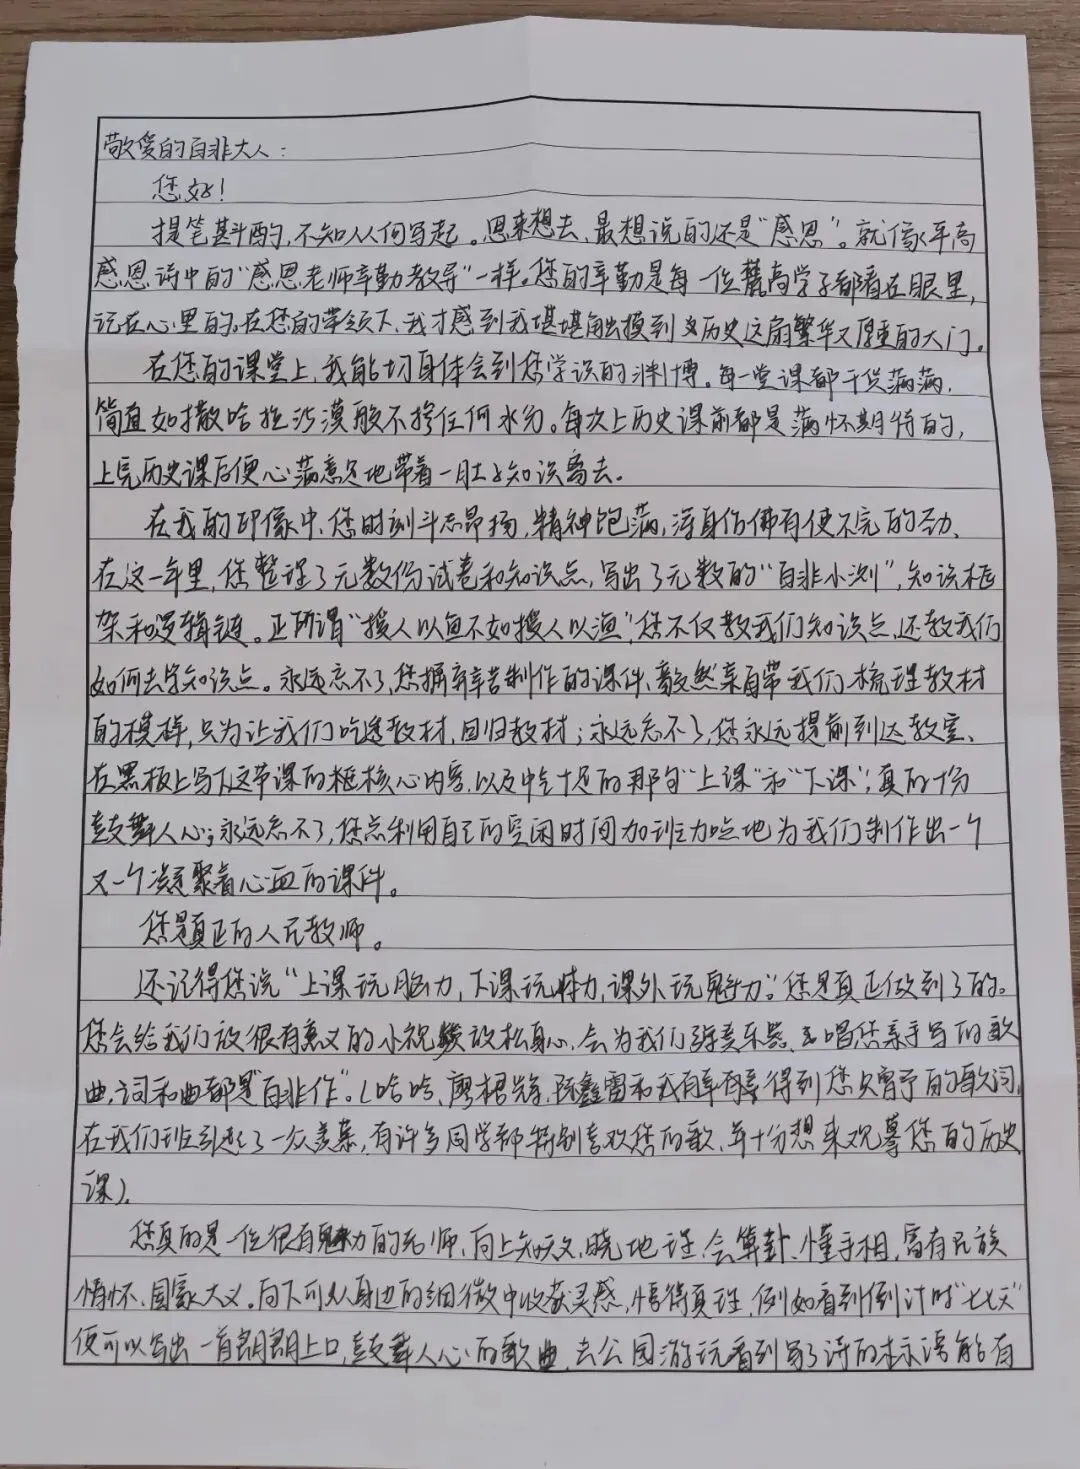 敬爱的自非大人：
您好！
提笔斟酌，不知从何写起。思来想去，最想说的还是“感恩”。就像平高
感恩诗中的“感恩老师辛勤教导”一样。您的辛勤是每一位麓高学子都看在眼里，
记在心里的。在您的带领下，我才感到我堪堪触摸到历史这扇繁华又厚重的大门。
在您的课堂上，我能切身体会到您学识的渊博。每一堂课都干货满满，
简直如撒哈拉沙漠般不掺任何水分。每次上历史课前都是满怀期待的，
上完历史课后便心满意足地带着一肚子知识离去。
在我的印像中，您时刻斗志昂扬，精神饱满，浑身仿佛有使不完的劲、
在这一年里，您整理了无数份试卷和知识点，写出了无数的“自非小测”，知识框
架和逻辑链。正所谓“授人以鱼不如授人以渔”，您不仅教我们知识点，还教我们
如何去学知识点。永远忘不了，您摒弃辛苦制作的课件、毅然亲自带我们梳理教材
的模样，只为让我们吃透教材，回归教材；永远忘不了，您永远提前到达教室、
在黑板上写下这节课的框核心内容，以及中气十足的那句“上课”和“下课”，真的十份
鼓舞人心；永远忘不了，您总利用自己的空闲时间加班加点地为我们制作出一个
又一个凝聚着心血的课件。
您是真正的人民教师。
还记得您说“上课玩脑力，下课玩体力，课外玩魅力”。您是真正做到了的。
您会给我们放很有意义的小视频放松身心，会为我们弹奏乐器、唱您亲手写的歌
曲，词和曲都是“自非作”。（哈哈，廖楷锋，陈鑫雷和我有幸得到您次曾予的歌词，
在我们班引起了一众羡慕，有许多同学都特别喜欢您的歌，十分想来观摩您的历史
课）。
您真的是一位很有魅力的老师，向上知天文，晓地理，会算卦、懂手相，富有民族
情怀、国家大义。向下可从身边的细微中收获灵感，悟得真理，例如看到倒计时“七七天”
便可以写出一首朗朗上口，鼓舞人心的歌曲，去公园游玩看到写了诗的标语能有